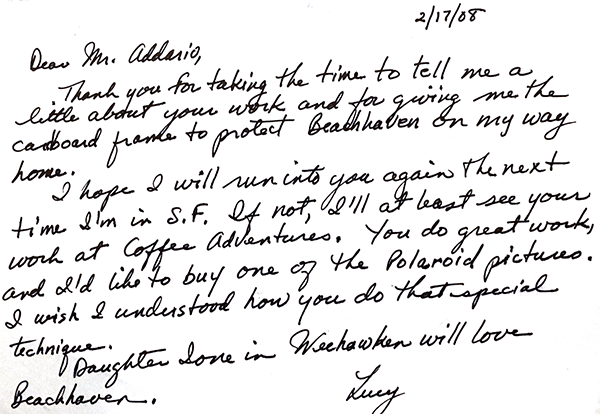 2/17/08
Dear Mr. Addario,
Thank you for taking the time to tell me a
little about your work and for giving me the
cardboard frame to protect Beachhaven on my way
home.
I hope I will run into you again the next
time I'm in S.F. If not, I'll at least see your
work at Coffee Adventures. You do great work,
and I'd like to buy one of the Polaroid pictures.
I wish I understood how you do that special
technique.
Daughter Ione in Weehawken will love
Beachhaven.
Lucy